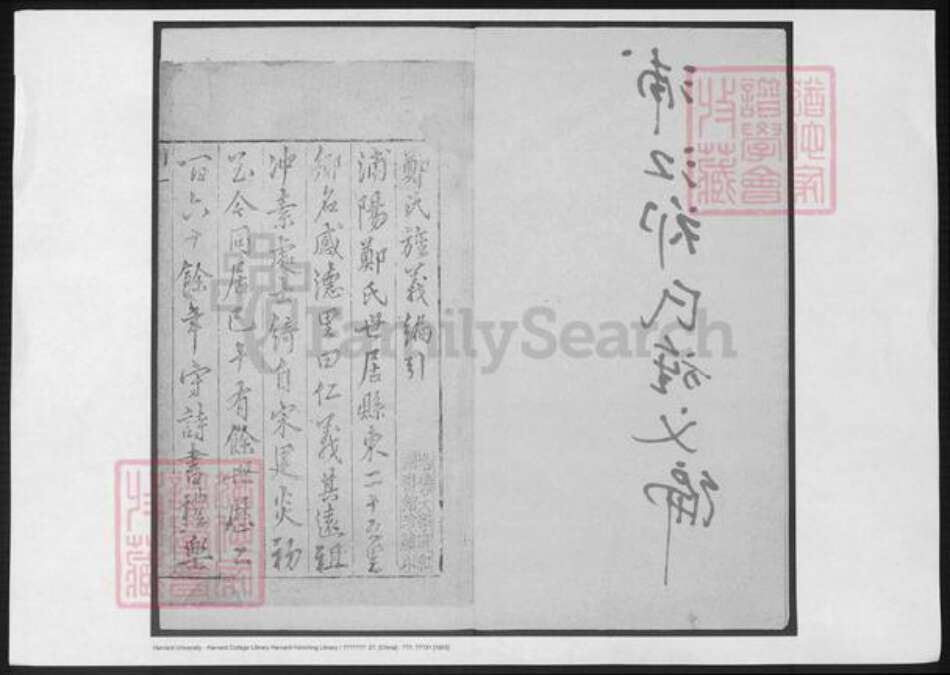 浦江郑氏旌义编
鄭氏旌義編引
浦陽鄭氏世居縣東二十五里
鄉名感德里曰仁義其遠祖
冲素處士綺自宋建炎初
至今同居已年有餘世歷二
百六十餘年守詩書禮樂
譜學會
收藏
FamilySearch
Harvard University - Harvard College Library Harvard-Yenching Library / ??????? 27, [China] : ???, ??131 [1803]